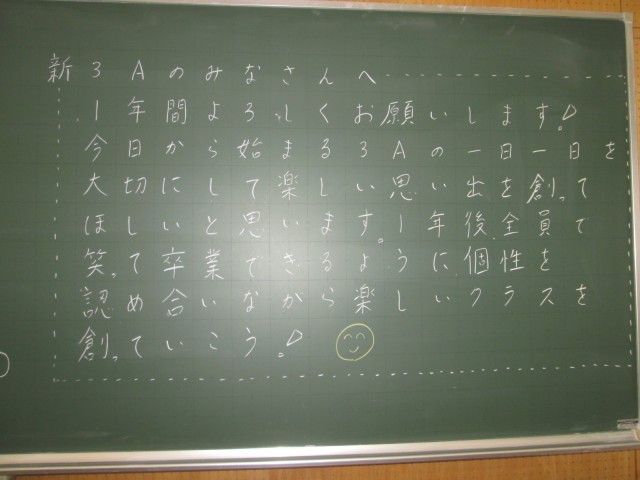 新3Aのみなさんへ
1年間よろしくお願いします!
今日から始まる3Aの一日一日を
大切にして楽しい思い出を創って
ほしいと思います。1年後、全員で
笑って卒業できるように個性を
認め合いながら楽しいクラスを
創っていこう!